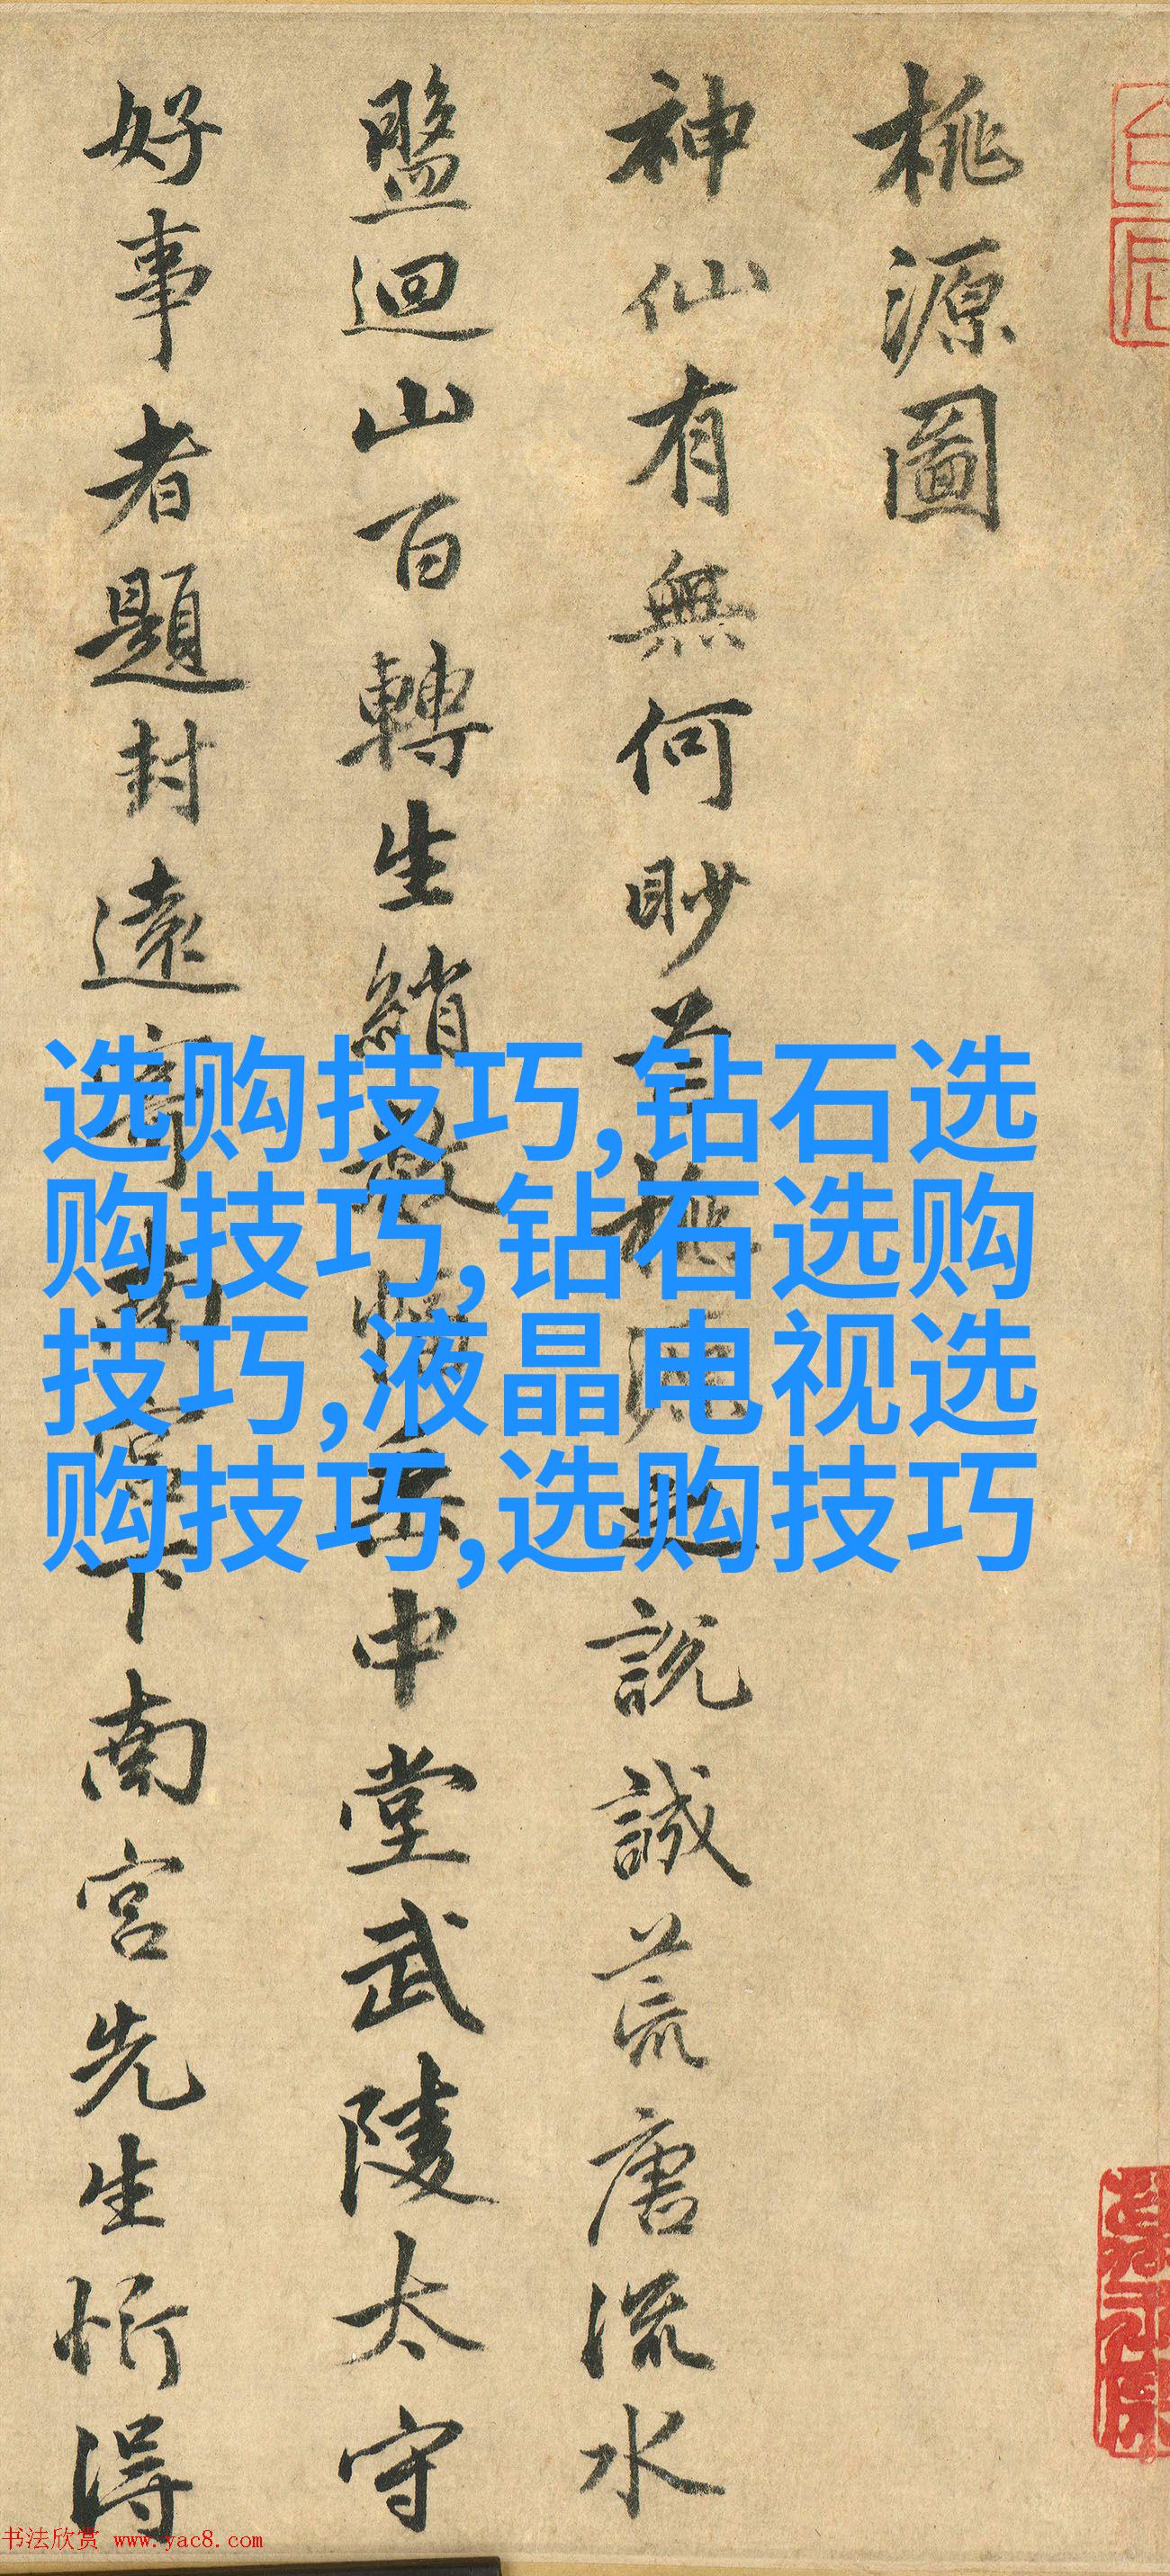 桃源圖
神仙有無何眇茫桃源之說誠荒唐流水
盤迴山百轉生綃數幅垂中堂武陵太守
好事者題封遠寄南宮下南宮先生忻得
选购技巧,钻石选
购技巧,钻石选购
技巧,液晶电视选
购技巧,选购技巧
书法欣赏 www.yac8.com